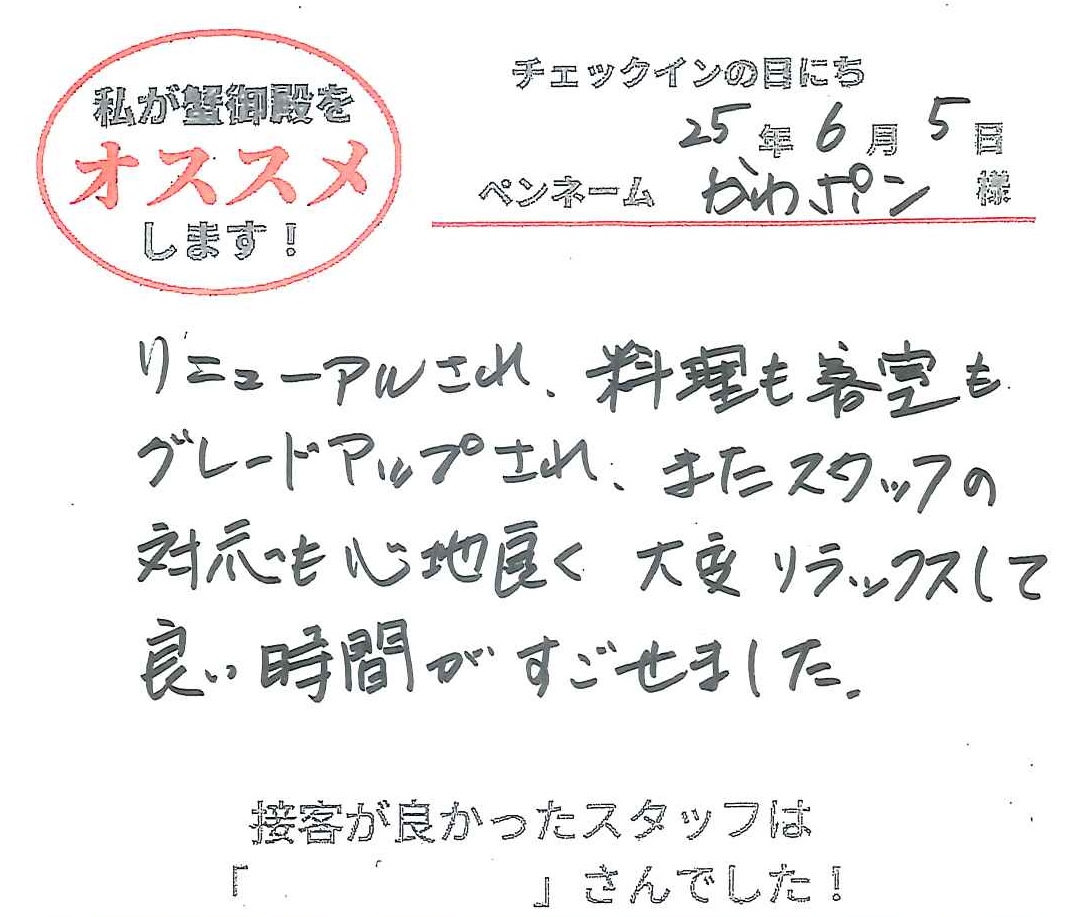 私が蟹御殿を
オススメ
します！
チェックインの日にち
25年6月5日
ペンネーム かわポン 様
リニューアルされ、料理も客室も
グレードアップされ、またスタッフの
対応も心地良く 大変リラックスして
良い時間がすごせました。
接客が良かったスタッフは
「　　　　」さんでした！